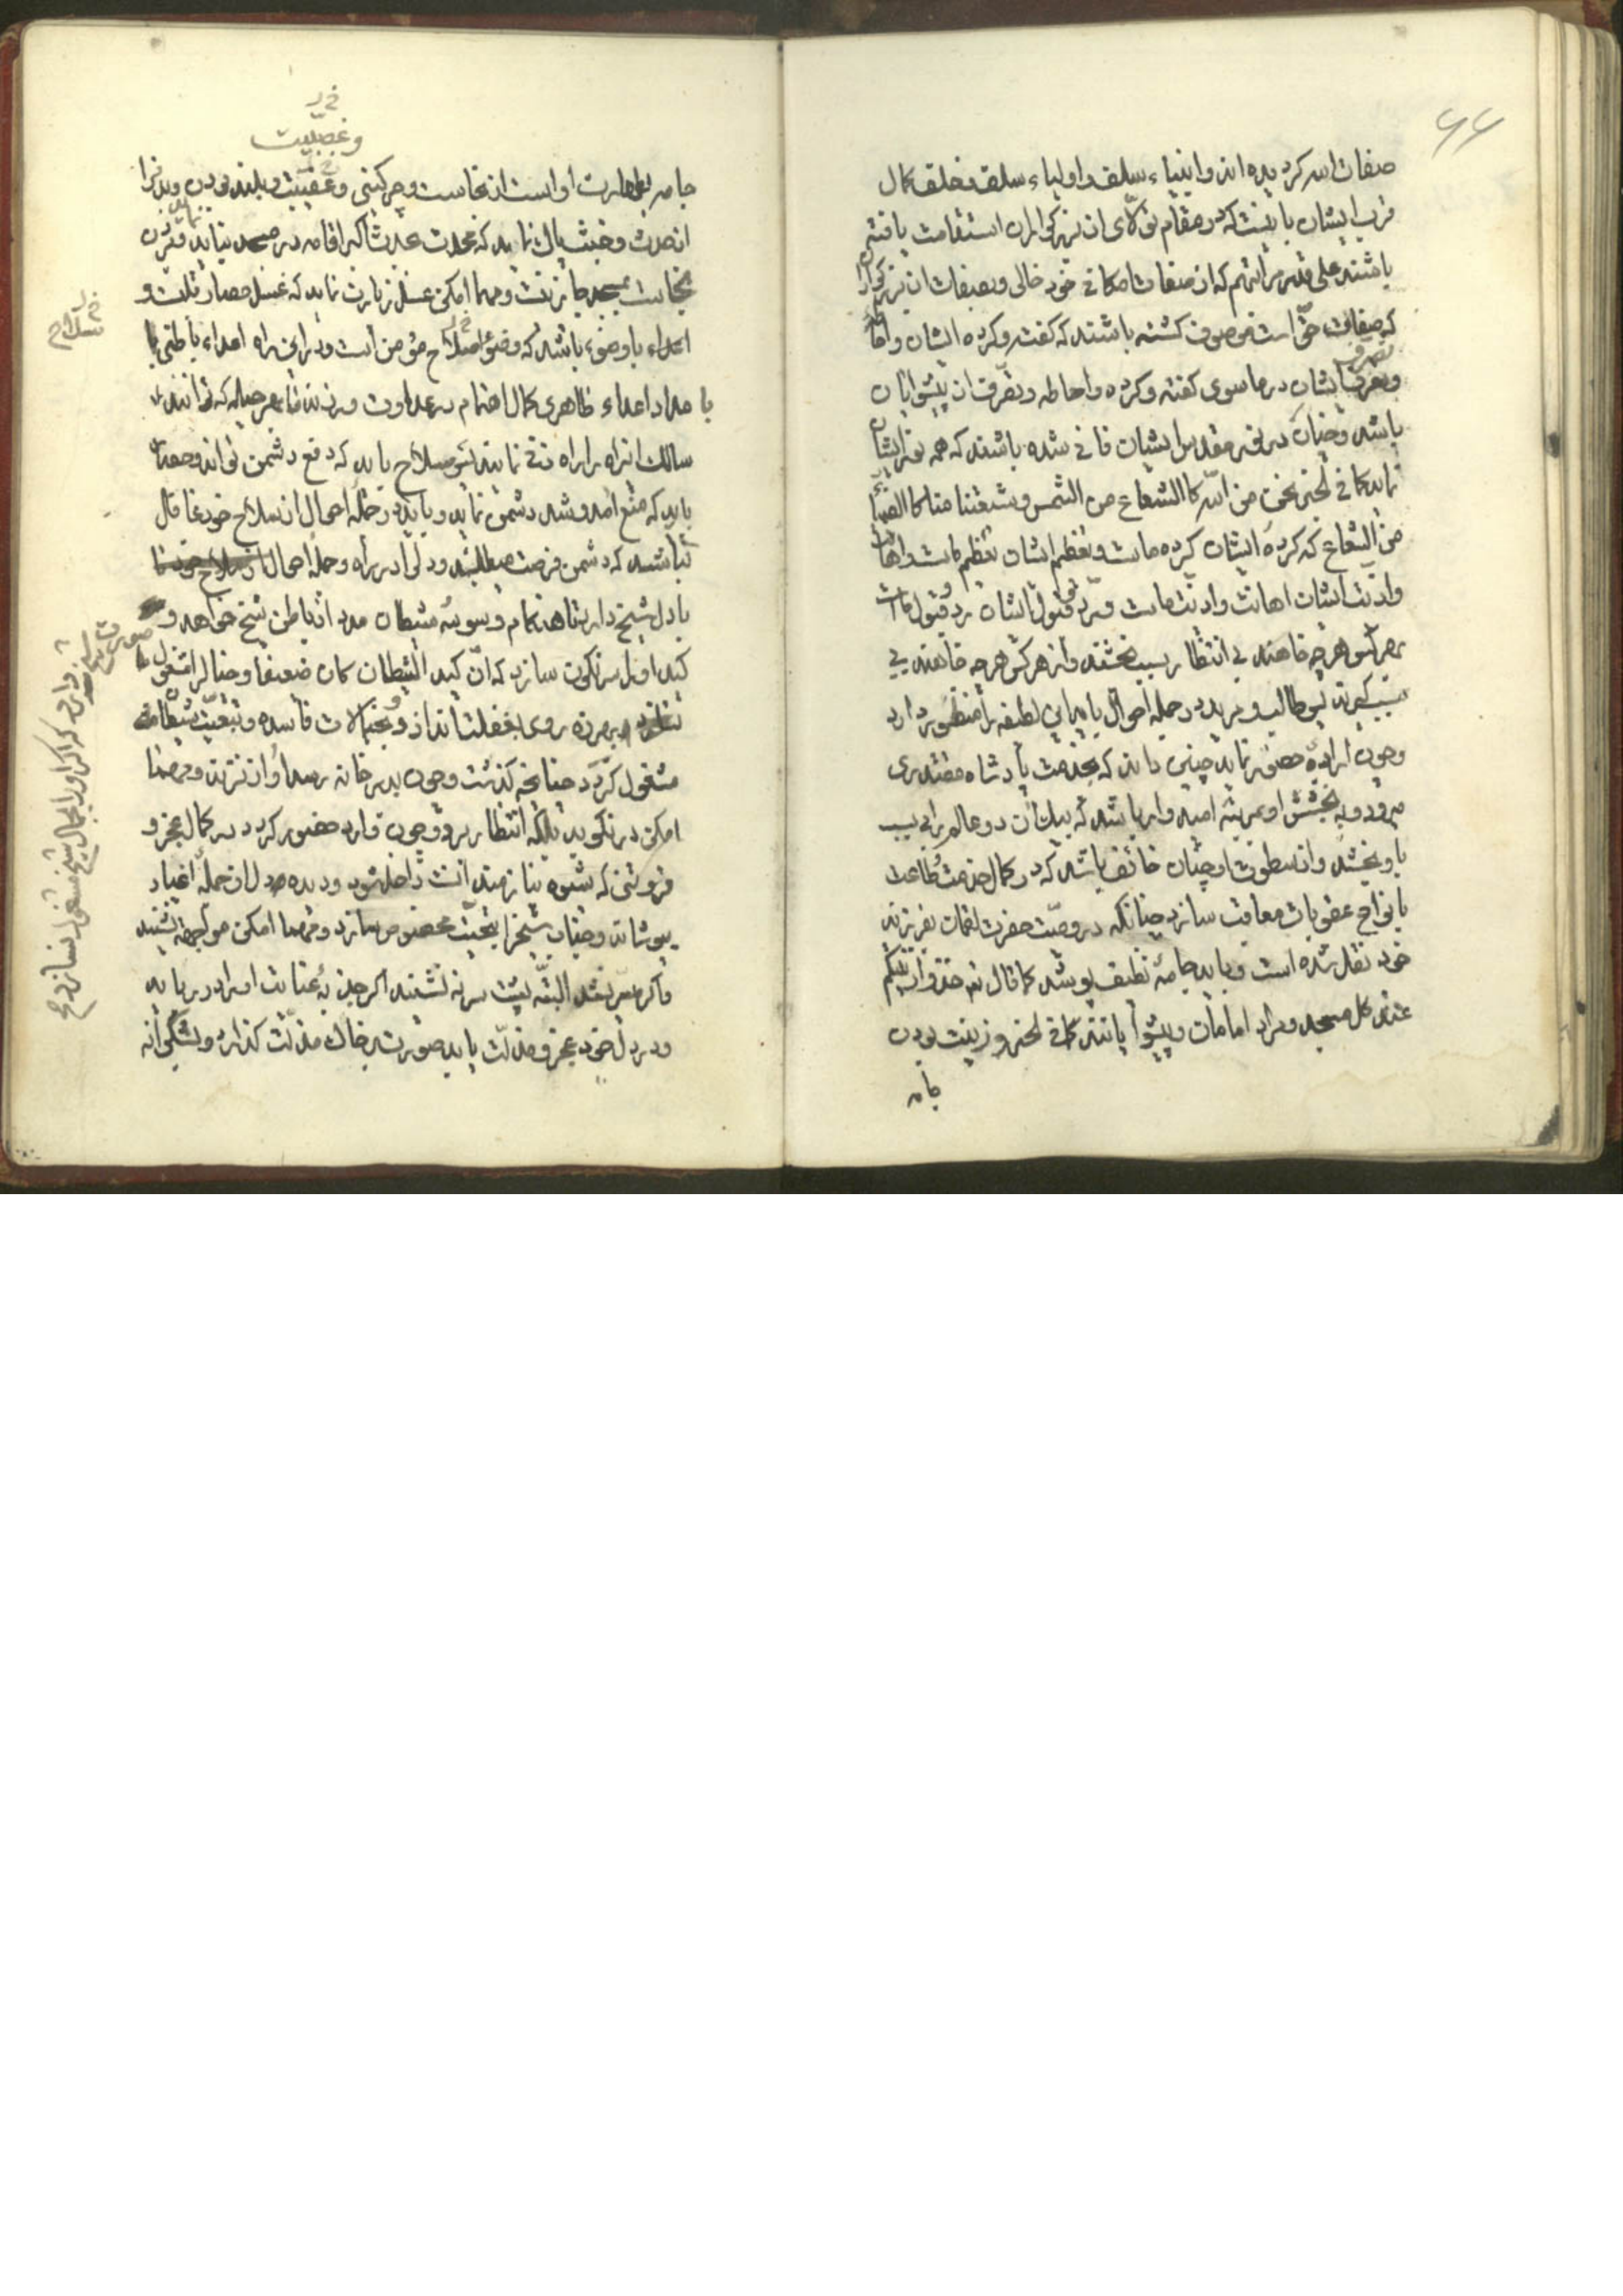 ۶۶
صفات الله کردیده اند و انبیاء سلف و اولیاء سلف و خلف کمال
قرب ایشان باینست که در مقام تولّای ان بزرکواران استقامت یافته
باشند علی قدر مراتبهم که از صفات امکانی خود خالی و بصفات ان بزرکواران
که صفات حقّ است موصوف کشته باشند که کفته و کرده ایشان و احاطه
و تصرف ایشان در ما سوی کفته و کرده و احاطه و تصرّف ان پیشوایان
باشد و چنان در نور مقدس ایشان فانی شده باشند که همه نور ایشان
نماید کما فی الخبر نحن من الله کالشعاع من الشمس و شیعتنا منا کالضیاء
من الشعاع که کرده ایشان کرده ماست و تعظیم ایشان تعظیم ماست و اهانت
و اذیت ایشان اهانت و اذیت ماست و ردّ و قبول ایشان رد و قبول ماست
بهر کس هر چه خواهند بی انتظار سبب بخشند و از هر کس هر چه خواهند بی
سبب کیرند پس طالب و مرید در جمله احوال باید این لطیفه را منظور دارد
و چون اراده حضور نماید چنین داند که بخدمت پادشاه مقتدری
میرود و به بخشش او بمرتبه امیدوار باشد که بیک ان دو عالم را بی سبب
باو بخشد و از سطوت او چنان خائف باشد که در کمال خدمت و طاعت
بانواع عقوبات معاقب سازد چنانکه در وصیّت حضرت لقمان بفرزند
خود نقل شده است و باید جامهٔ نظیف پوشد کما قال تع خذوا زینتکم
عند کل مسجد و مراد امامان و پیشوا یانند کما فی الخبر و زینت بودن
جامه
خ ر
وغصبیّت
جامه بطهارت اواست از نجاست و چرکینی و غصبیت و پلید بودن و بدنرا
از حدث و خبث پاک نماید که محدث بحدث اکبر اقامه در مسجد ننماید و بردن
نجاست بمسجد جایز نیست و مهما امکن غسل زیارت نماید که غسل حصار تنست و
اعداء باوضوء باشد که وضوء سلاح مؤمن است و در این راه اعداء باطنی با
بامداد اعداء ظاهری کمال اهتمام در عداوت ورزند تا بهر حیله که توانند
سالک این راه را از راه منع نمایند پس سلاح باید که دفع دشمن تواند
باید که منع امد و شد دشمن نماید و باید در جمله احوال از سلاح خود غافل
نباشد که دشمن فرصت میطلبد و دل در راه و جمله احوال
با دل شیخ دارد تا هنکام وسوسه شیطان مدد از باطن شیخ خواهد و
کید او را سرنکون سازد که انّ کید الشیطان کان ضعیفا و خیال را مشغول
روی بغفلت اندازد و بخیالات فاسده و تبعیّت شیطان
مشغول کردد چنانچه کذشت و چون بدر خانه رسد اواز نزند و مهما
امکن در نکوبد بلکه انتظار برد و چون وارد حضور کردد در کمال عجز و
فروتنی که شیوه نیازمندان است داخل شود و دیده دل از جمله اغیار
بپوشاند و جناب شیخرا بتحیت مخصوص سازد و مهما امکن مواجهه نشیند
و اکر میسّر نشد البتّه پشت سر نه نشیند اکر جذبهٔ عنایت او را در رباید
و در دل خود عجز و مذلّت یابد صورت بر خاک مذلّت کذارد و بشکرانه
خ ل
سلاح